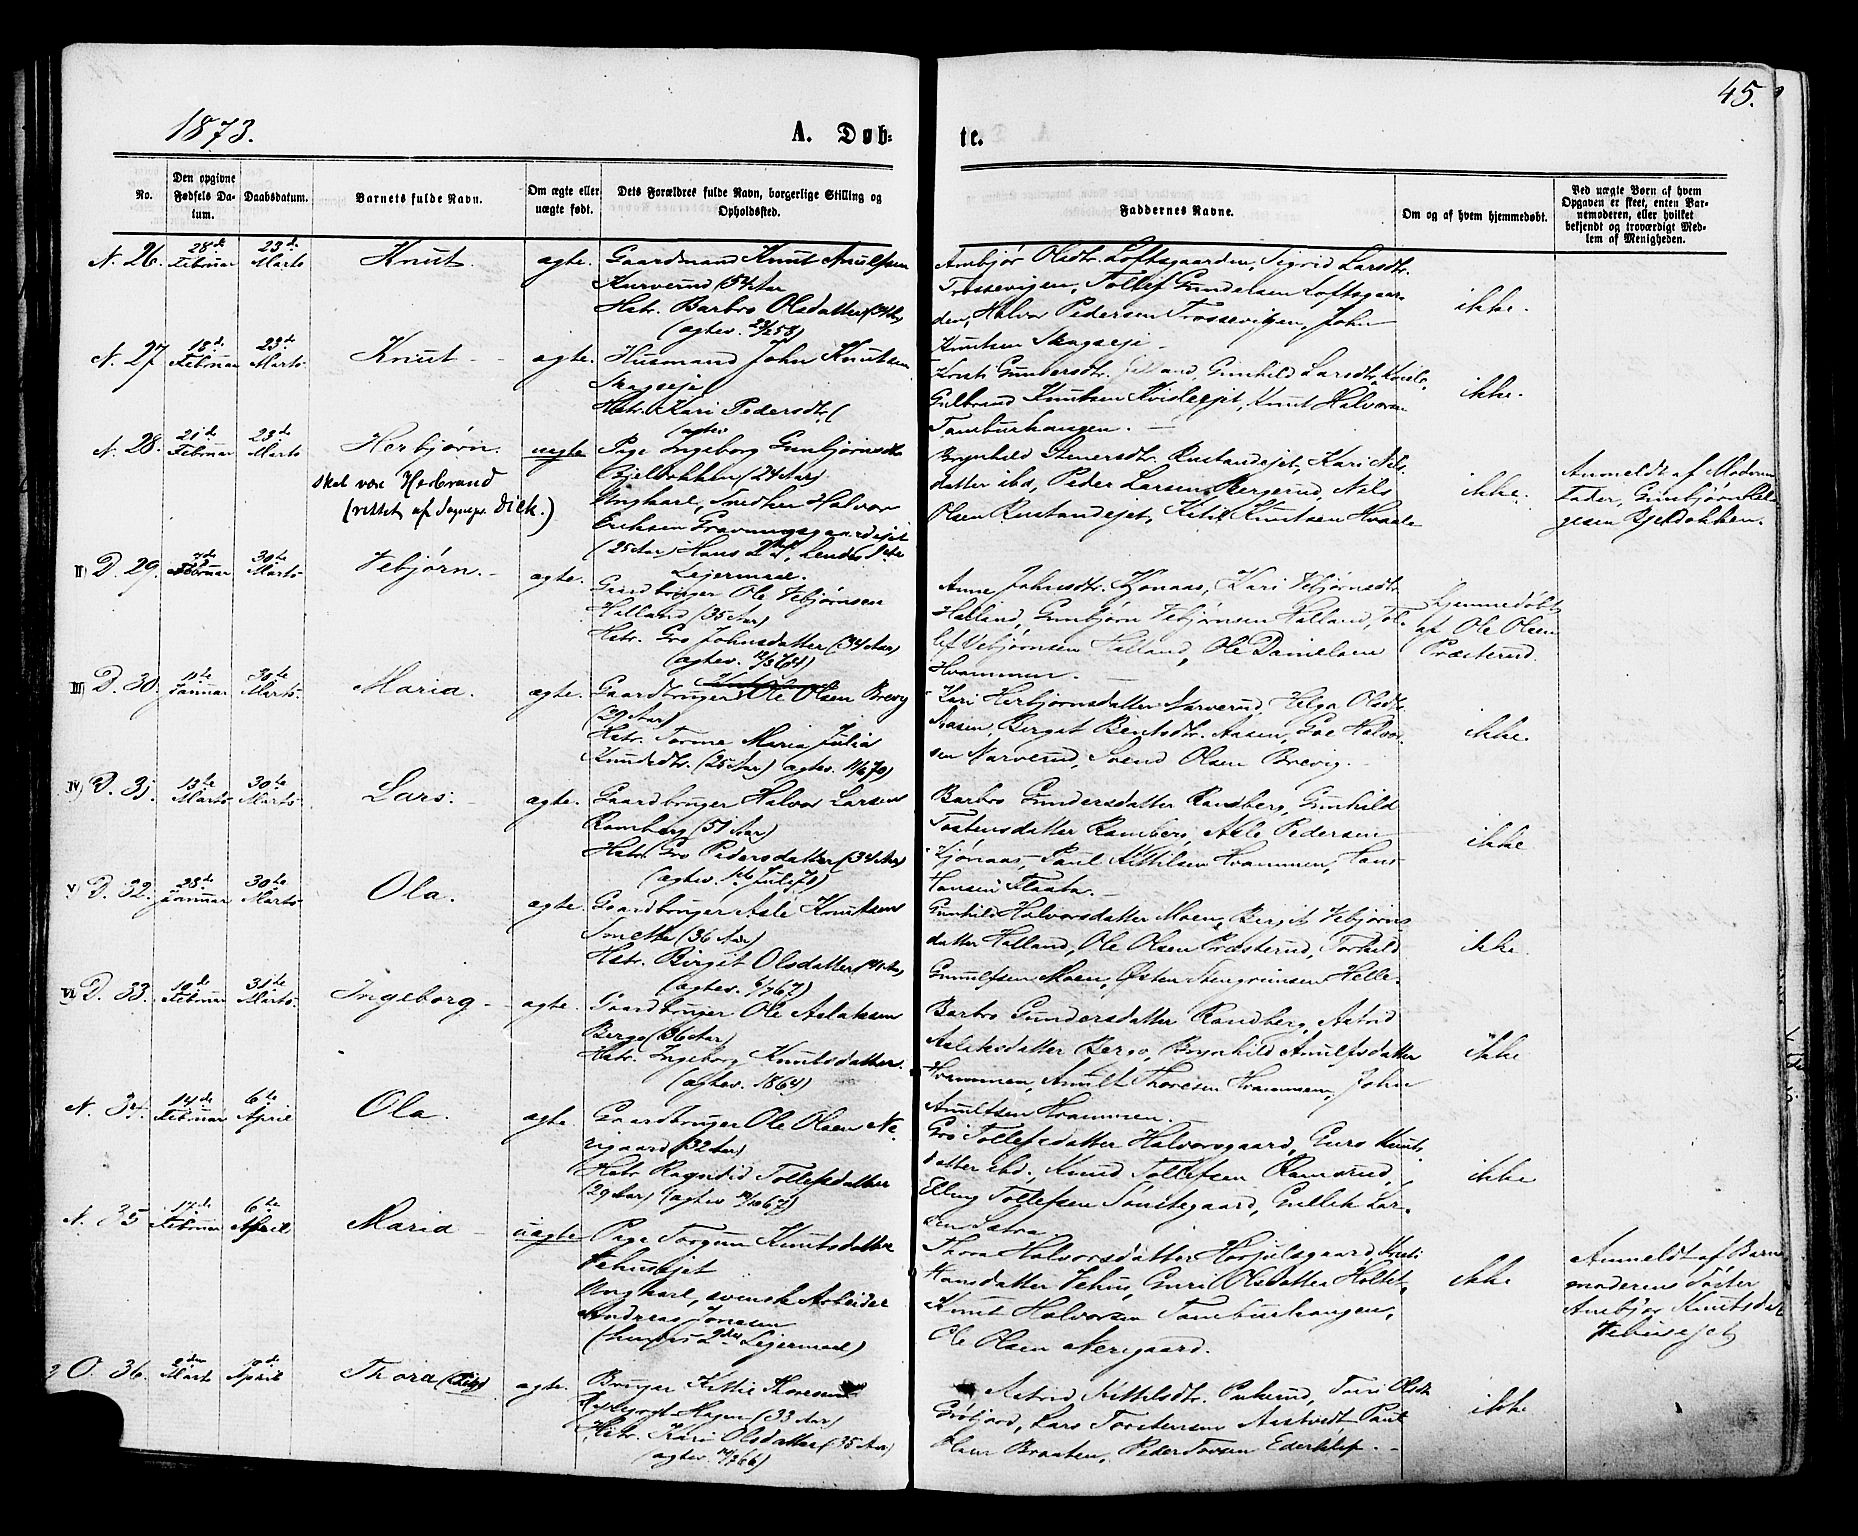 45.
1873.
A. Døb-
te.
No.
Den opgivne Fødsels Datum.
Daabsdatum.
Barnets fulde Navn.
Om ægte eller uægte født.
Dets Forældres fulde Navn, borgerlige Stilling og Opholdssted.
Faddernes Navne.
Om og af hvem hjemmedøbt.
Ved uægte Børn af hvem Opgaven er skeet, enten Barnemoderen, eller hvilket bekjendt og troværdigt Medlem af Menigheden.
N. 26. 28de Februar 23de Marts Knut ægte. Gaardmand Knut
Kurverud (54 Aar
Hstr. Barbro Olsdatter
(ægtev. 58)
Ambjør Olsdtr. Loftsgaarden, Sigrid Larsdtr.
Trossevigen, Tollef Gundelsen Loftsgaar-
den, Halvor Pedersen Trossevigen, John
Knutsen Skagseje
ikke.
N. 27 18de Februar 23de Marts Knut ægte. Husmand John Knutsen
Skagseje
Hstr. Kari Pedersdtr (
(ægtev
Gunhild Larsdtr.
Gulbrand Knutsen Knut Halvorsen
Tamburhaugen.
ikke.
N. 28. 21de Februar 23de Marts Herbjørn. uægte
skal være Herbrand
(rettet af Sognepr. Dick.)
Pige Ingeborg Gunbjørnsdtr
Bjeldokken (24 Aar)
Ungkarl, Halvor
Eriksen
(25 Aar) Hans 2det, hendes 1ste
Lejermaal.
Brynhild Stenersdtr. Rustandejet, Kari Nils-
datter ibd, Peder Larsen Bergerud, Nils
Olsen Rustandejet, Knutsen
ikke.
Anmeldt af Moderens
Fader, Gunbjørn Hel-
gesen Bjeldokken.
II) D. 29. 7de Februar 30te Marts Vebjørn. ægte.
Gaardbruger Ole Vebjørnsen
Halland (35 Aar)
Hstr. Gro Johnsdatter (34 Aar)
Anne Johnsdtr. Kjønaas, Kari Vebjørnsdtr
Halland, Gunbjørn Vebjørnsen Halland, Tol-
lef Vebjørnsen Halland, Ole Danielsen
Hvammen.
hjemmedøbt
af Ole Olsen
Præsterud.
III) D. 30. Januar 30te Marts. Maria. ægte.
Gaardbruger Ole Olsen Brevig
(29 Aar)
Hstr. Torine Maria Julia
Knudsdtr. (25 Aar) ægtev.
Kari Herbjørnsdatter Narverud, Helga Olsdtr.
Aasen, Birgit Bentsdtr. Aasen, Halvor-
sen Narverud, Svend Olsen Brevig.
ikke.
IV) D. 31. 13te Marts 30te Marts Lars. ægte.
Gaardbruger Halvor Larsen
Ramberg (51 Aar)
Hstr. Gro Pedersdatter (34 Aar)
(ægtev. Juli 70)
Barbro Gundersdatter Ramberg, Gunhild
Tostensdatter Ramberg, Asle Pedersen
Kjønaas, Paul Kittilsen Hvammen, Hans
Hansen Flaata.
ikke
V) D. 32. 28de Januar 30te Marts Ola. ægte.
Gaardbruger Asle Knutsen
(36 Aar)
Hstr. Birgit Olsdatter
(ægtev. 67)
Gunhild Halvorsdatter Moen, Birgit Vebjørns
datter Halland, Ole Olsen Præsterud, Torkild
Gunulfsen Moen, Østen Stengrimsen Helle
ikke.
VI D. 33. Februar 31te Marts. Ingeborg. ægte.
Gaardbruger Ole Aslaksen
Bergo (36 Aar)
Hstr. Ingeborg Knutsdatter.
(ægtev. 1864)
Barbro Gundersdatter Ramberg, Astrid
Aslaksdatter Bergo, Brynhild
Hvammen, Thoresen Hvammen, John
Hvammen.
ikke
N. 34. 14de Februar 6te April Ola. ægte.
Gaardbruger Ole Olsen Ne-
rigaard (32 Aar)
Hstr. Ragnild Tollefsdatter
(29 Aar) (ægtev 67)
Gro Tollefsdatter Halvorsgaard, Guro Knuts
datter ibd, Knud Tollefsen Ramsrud,
Elling Tollefsen Gullik Lar-
sen Sætra
ikke
N. 35 17de Februar 6te April Maria uægte
Pige Torgun Knutsdatter
Vehusejet
Ungkarl, svensk Arbeider
Andreas Jonsen
(hendes 2det Lejermaal)
Thora Halvorsdatter
Hansdatter Vehus, Guri Olsdatter Holtet,
Knut Halvorsen Tamburhaugen,
Ole Olsen Nerigaard.
ikke
Anmeldt af Barne
moderens Søster
Ambjør Knutsdat
Vehusejet
O. 36. Marts April Thora ægte.
Bruger Kittil Thoresen
Hagen (33 Aar)
Hstr. Kari Olsdatter (35 Aar)
(ægtev. 66)
Astrid Kittilsdtr. Olsdtr
Lars Torstensen Paul
Olsen Braaten, Peder Tovsen
ikke